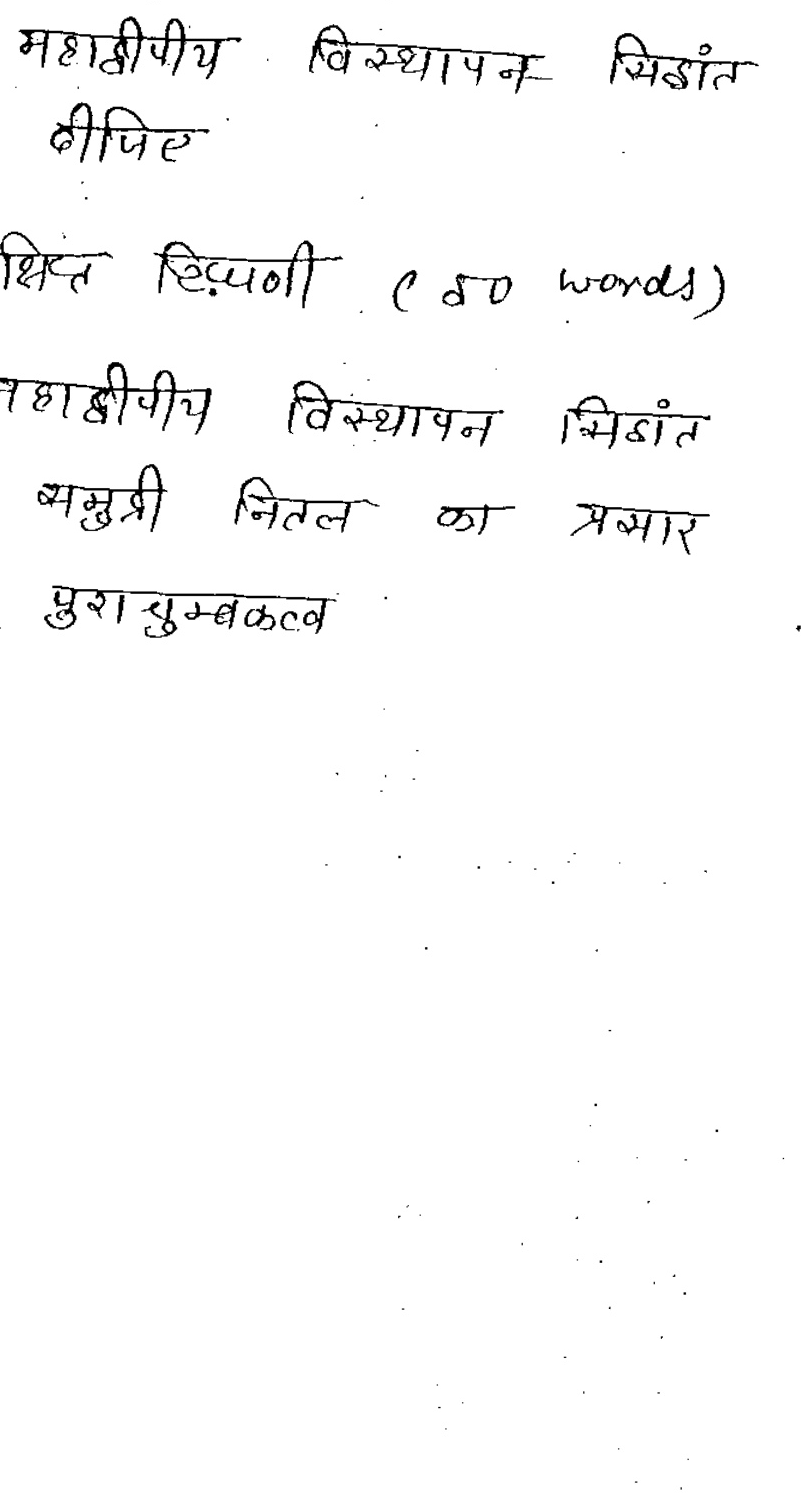 महाद्वीपीय विस्थापन सिद्धांत
दीजिए
क्षिप्त टिप्पणी ( 50 words)
महाद्वीपीय विस्थापन सिद्धांत
समुद्री नितल का प्रसार
पुराचुम्बकत्व